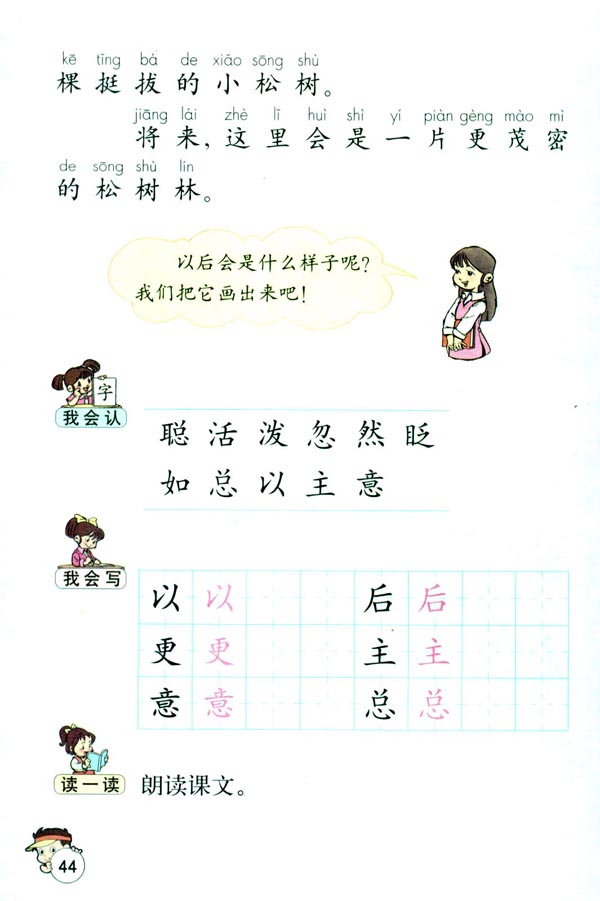 kē tǐng bá de xiǎo sōng shù
棵挺拔的小松树。
jiāng lái zhè lǐ huì shì yí piàn gèng mào mì
将来，这里会是一片更茂密
de sōng shù lín
的松树林。
以后会是什么样子呢？
我们把它画出来吧！
字
我会认
聪活泼忽然眨
如总以主意
我会写
以 以 后 后
更 更 主 主
意 意 总 总
读一读 朗读课文。
44